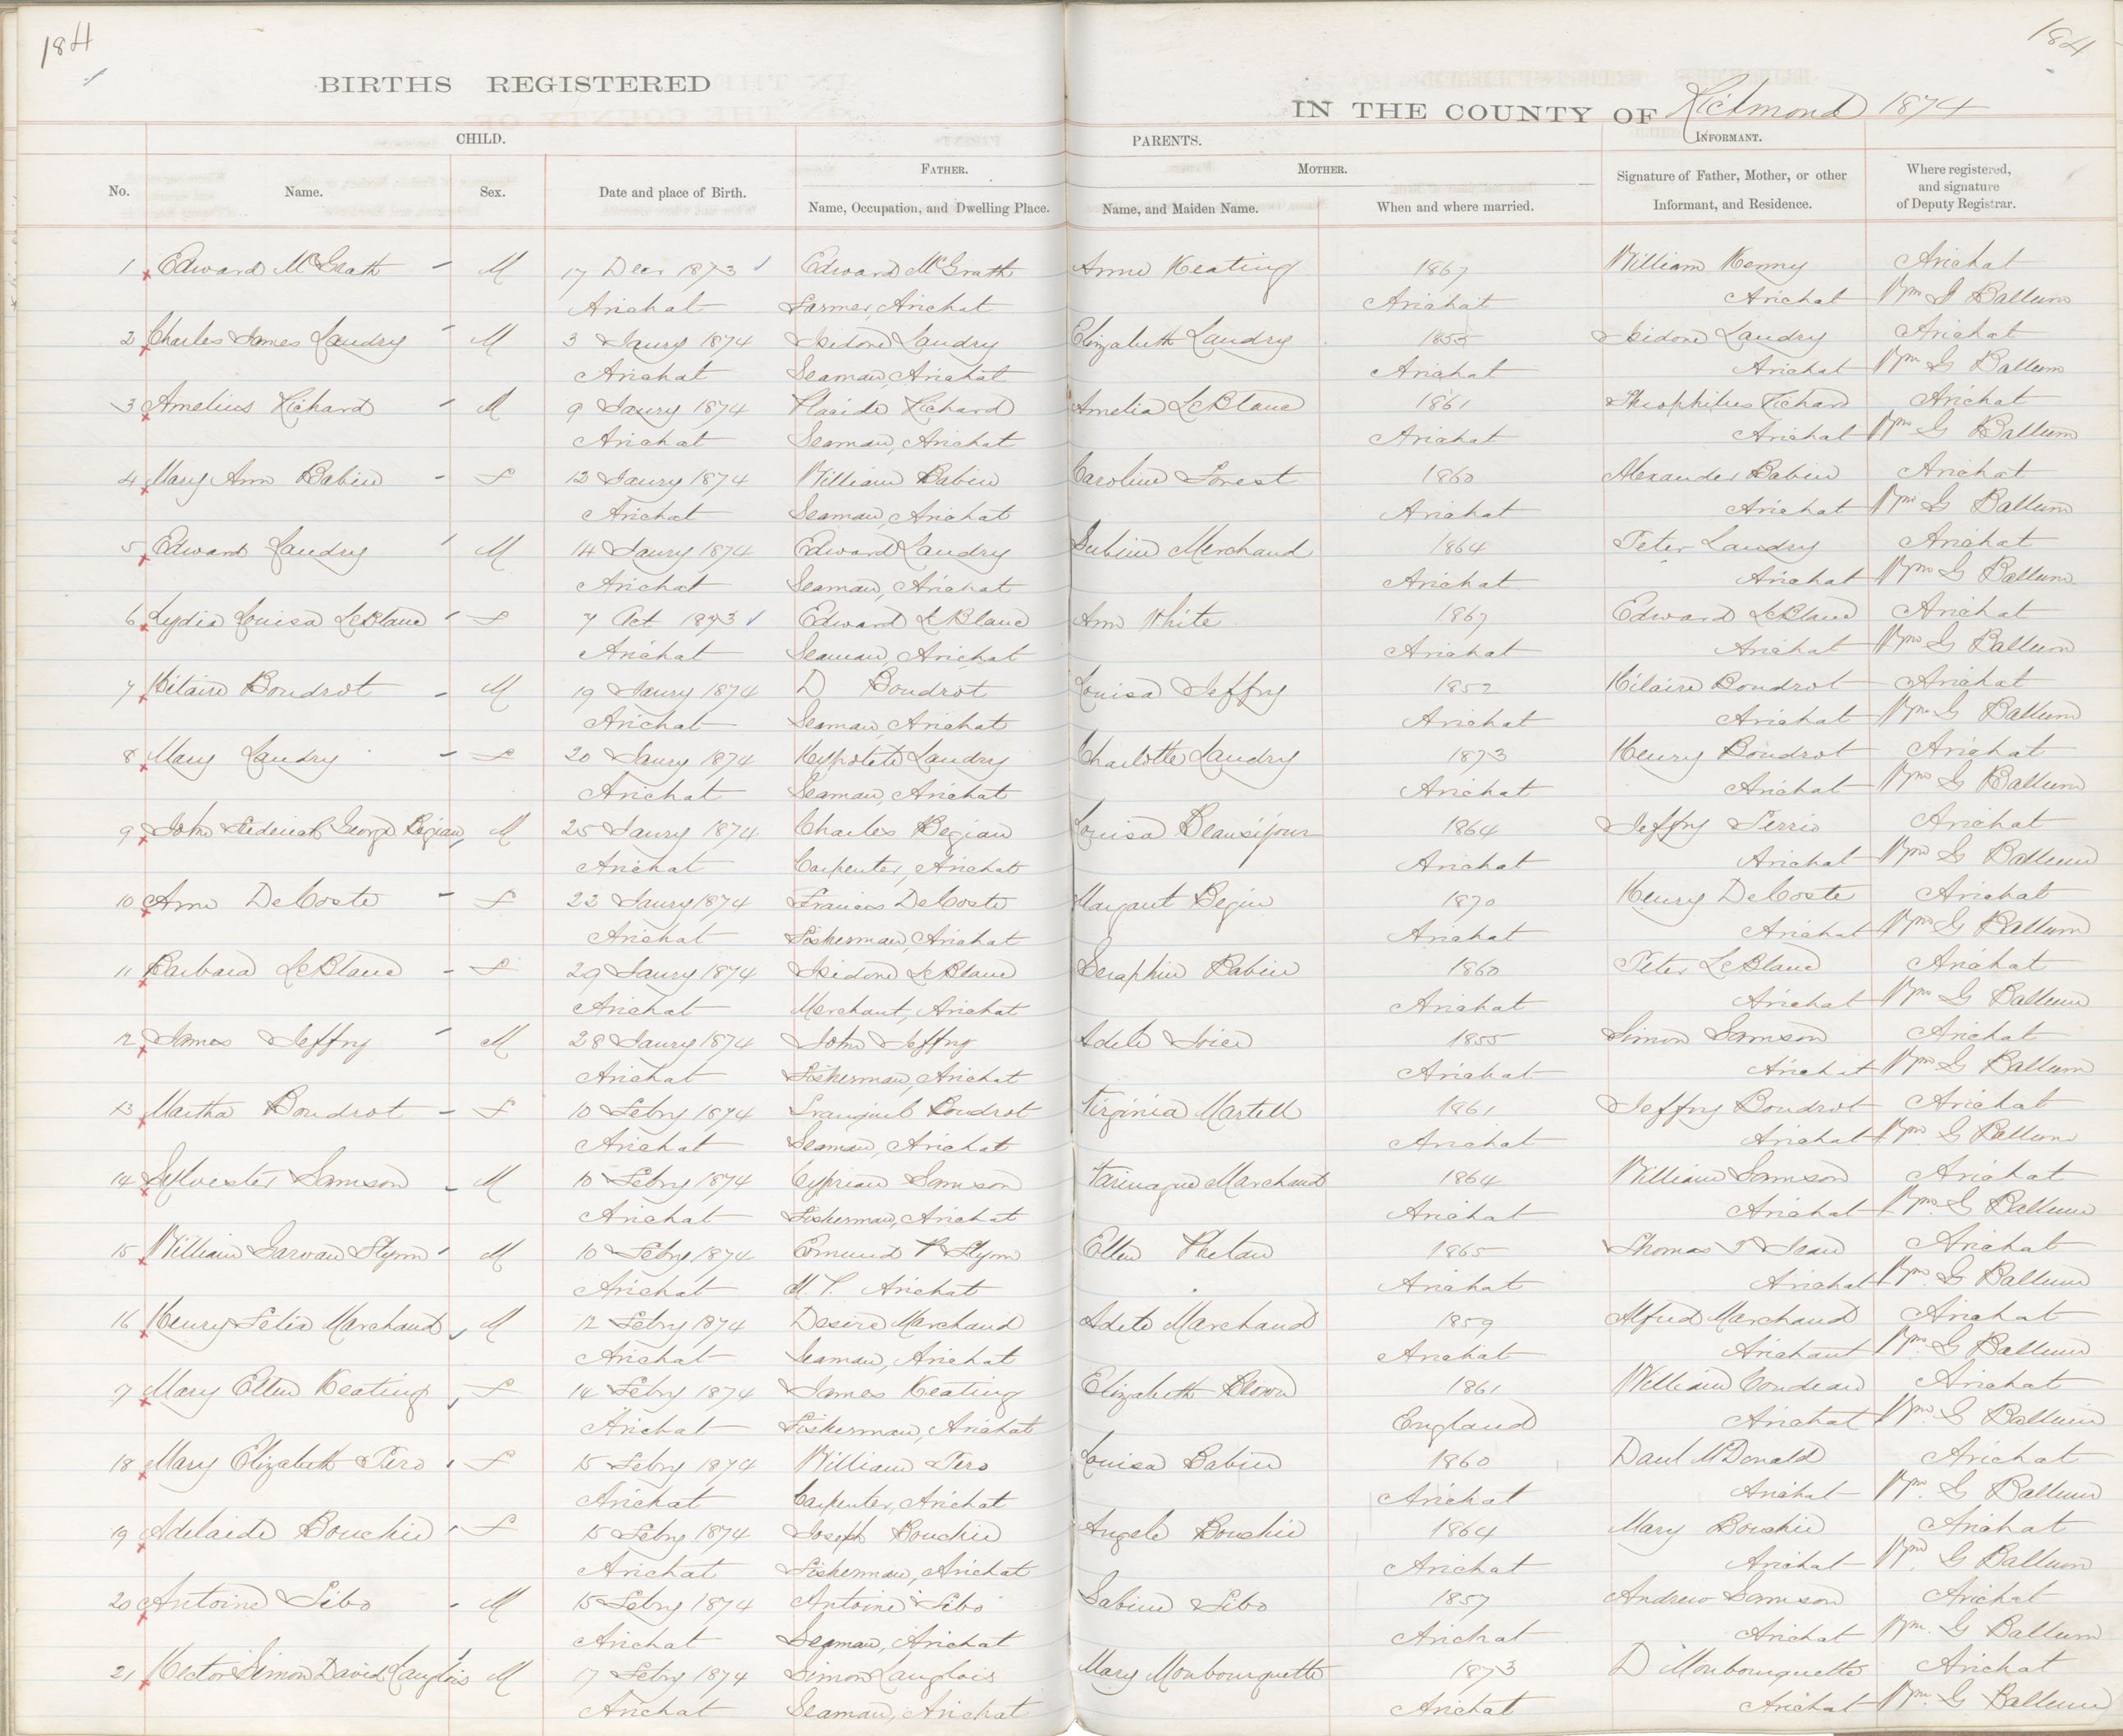 184
184
BIRTHS REGISTERED
IN THE COUNTY OF Richmond 1874
CHILD.
PARENTS.
INFORMANT.
No.
Name.
Sex.
Date and place of Birth.
FATHER.
Name, Occupation, and Dwelling Place.
MOTHER.
Name, and Maiden Name.
When and where married.
Signature of Father, Mother, or other
Informant, and Residence.
Where registered,
and signature
of Deputy Registrar.
1 Edward McGrath - M 17 Decr 1873 Edward McGrath Anne Keating 1867 William Kenny Arichat
Arichat Farmer, Arichat Arichat Arichat Wm G Ballum
2 Charles James Landry - M 3 Jaury 1874 Isidore Landry Elizabeth Landry 1855 Isidore Landry Arichat
Arichat Seaman, Arichat Arichat Arichat Wm G Ballum
3 Amelius Richard - M 9 Jaury 1874 Placide Richard Amelia LeBlanc 1861 Theophilus Richard Arichat
Arichat Seaman, Arichat Arichat Arichat Wm G Ballum
4 Mary Ann Babin - F 12 Jaury 1874 William Babin Caroline Forest 1860 Alexander Babin Arichat
Arichat Seaman, Arichat Arichat Arichat Wm G Ballum
5 Edward Landry - M 14 Jaury 1874 Edward Landry Sabine Merchand 1864 Peter Landry Arichat
Arichat Seaman, Arichat Arichat Arichat Wm G Ballum
6 Lydia Louisa LeBlanc - F 7 Oct 1873 Edward LeBlanc Ann White 1867 Edward LeBlanc Arichat
Arichat Seaman, Arichat Arichat Arichat Wm G Ballum
7 Hilaire Boudrot - M 19 Jaury 1874 D Boudrot Louisa Jeffry 1852 Hilaire Boudrot Arichat
Arichat Seaman, Arichat Arichat Arichat Wm G Ballum
8 Mary Landry - F 20 Jaury 1874 Hyppolite Landry Charlotte Landry 1873 Henry Boudrot Arichat
Arichat Seaman, Arichat Arichat Arichat Wm G Ballum
9 John Frederick George Begian, M 25 Jaury 1874 Charles Begian Louisa Beausijour 1864 Jeffry Terrio Arichat
Arichat Carpenter, Arichat Arichat Arichat Wm G Ballum
10 Ann DeCoste - F 22 Jaury 1874 Francis DeCoste Margaret Begin 1870 Henry DeCoste Arichat
Arichat Fisherman, Arichat Arichat Arichat Wm G Ballum
11 Barbara LeBlanc - F 29 Jaury 1874 Isidore LeBlanc Seraphin Babin 1860 Peter LeBlanc Arichat
Arichat Merchant, Arichat Arichat Arichat Wm G Ballum
12 James Jeffry - M 28 Jaury 1874 John Jeffry Adele 1855 Simon Samson Arichat
Arichat Fisherman, Arichat Arichat Arichat Wm G Ballum
13 Martha Boudrot - F 10 Febry 1874 Boudrot Virginia Martell 1861 Jeffry Boudrot Arichat
Arichat Seaman, Arichat Arichat Arichat Wm G Ballum
14 Sylvester Samson - M 10 Febry 1874 Cyprian Samson Marchand 1864 William Samson Arichat
Arichat Fisherman, Arichat Arichat Arichat Wm G Ballum
15 William Garvan Flynn - M 10 Febry 1874 Edmund P Flynn Ellen Phelan 1865 Thomas Jean Arichat
Arichat M. P. Arichat Arichat Arichat Wm G Ballum
16 Henry Felix Marchand M 12 Febry 1874 Desire Marchand Adele Marchand 1859 Alfred Marchand Arichat
Arichat Seaman, Arichat Arichat Arichaut Wm G Ballum
17 Mary Ellen Keating F 14 Febry 1874 James Keating Elizabeth Brown 1861 William Arichat
Arichat Fisherman, Arichat England Arichat Wm G Ballum
18 Mary Elizabeth Fero F 15 Febry 1874 William Fero Louisa Babin 1860 Danl McDonald Arichat
Arichat Carpenter, Arichat Arichat Arichat Wm G Ballum
19 Adelaide Bouchie F 15 Febry 1874 Joseph Bouchie Angele Bouchie 1864 Mary Bouchie Arichat
Arichat Fisherman, Arichat Arichat Arichat Wm G Ballum
20 Antoine Sibo - M 15 Febry 1874 Antoine Sibo Sabine Sibo 1857 Andrew Samson Arichat
Arichat Seaman, Arichat Arichat Arichat Wm. G Ballum
21 Hector Simon David Langlois M 17 Febry 1874 Simon Langlois Mary Monbourquette 1873 D Monbourquette Arichat
Arichat Seaman, Arichat Arichat Arichat Wm. G Ballum